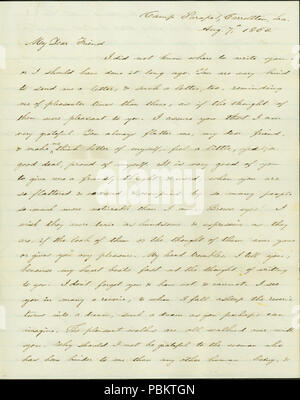 Camp Parapet, Carrollton, La.
Aug. 7th 1862
My Dear Friend
I did not know where to write you,
or I should have done it long ago. You are very kind
to send me a letter, & such a letter, too, reminding
me of pleasanter times than these, as if the thought of
them were pleasant to you. I assure you that I am
very grateful. You always flatter me, my dear friend,
& make me think better of myself, just a little, yes, a
good deal, proud of myself. It is very good of you
to give me a friend's when you are
so flattered & by so many people
so much more noticeable than I am. Brown eyes! I
wish they were twice as handsome & expressive as they
are, if the look of them or the thought of them can give
you or gives you any pleasure. My hand trembles, I tell you,
because my heart beats fast at the thought of writing
to you. I don't forget you & have not & cannot. I see
you in many a reverie, & when I fall asleep the reverie
turns into a dream, such a dream as you perhaps can
imagine. The pleasant walks are all walked over with
you. Why should I not be grateful to the woman who
has been kinder to me than any other human being, &
alamy
Image ID: PBKTGN
www.alamy.com